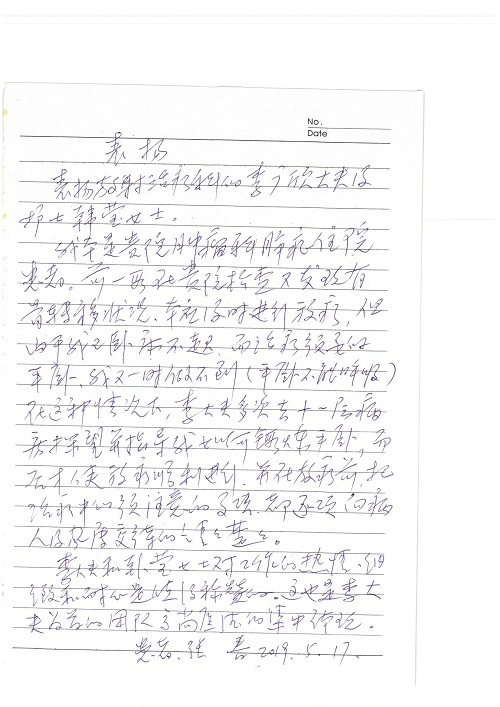 No.
Date
表扬
表扬放射治疗科的李 欣大夫及
护士韩莹女士。
我本是贵院肿瘤科肺癌住院
患者。前一两 贵院检查又发现有
骨转移状况,本应及时进行放疗,但
由于我已卧床不起,而治疗须要的
平卧,我又一时做不到(平卧不能呼吸)
在这种情况下,李大夫多次去十一层病
房来 望并指导我如何锻炼平卧,而
后才使放疗顺利进行,并在放疗前,把
治疗中必须注意的事项,都逐项向病
人及家属交待的清清楚楚。
李大夫和韩莹女士对工作的热情,细
致和耐心 值得称赞的。这也是李大
夫为首的团队 高 的集中体现。
患者:张 2019.5.17.